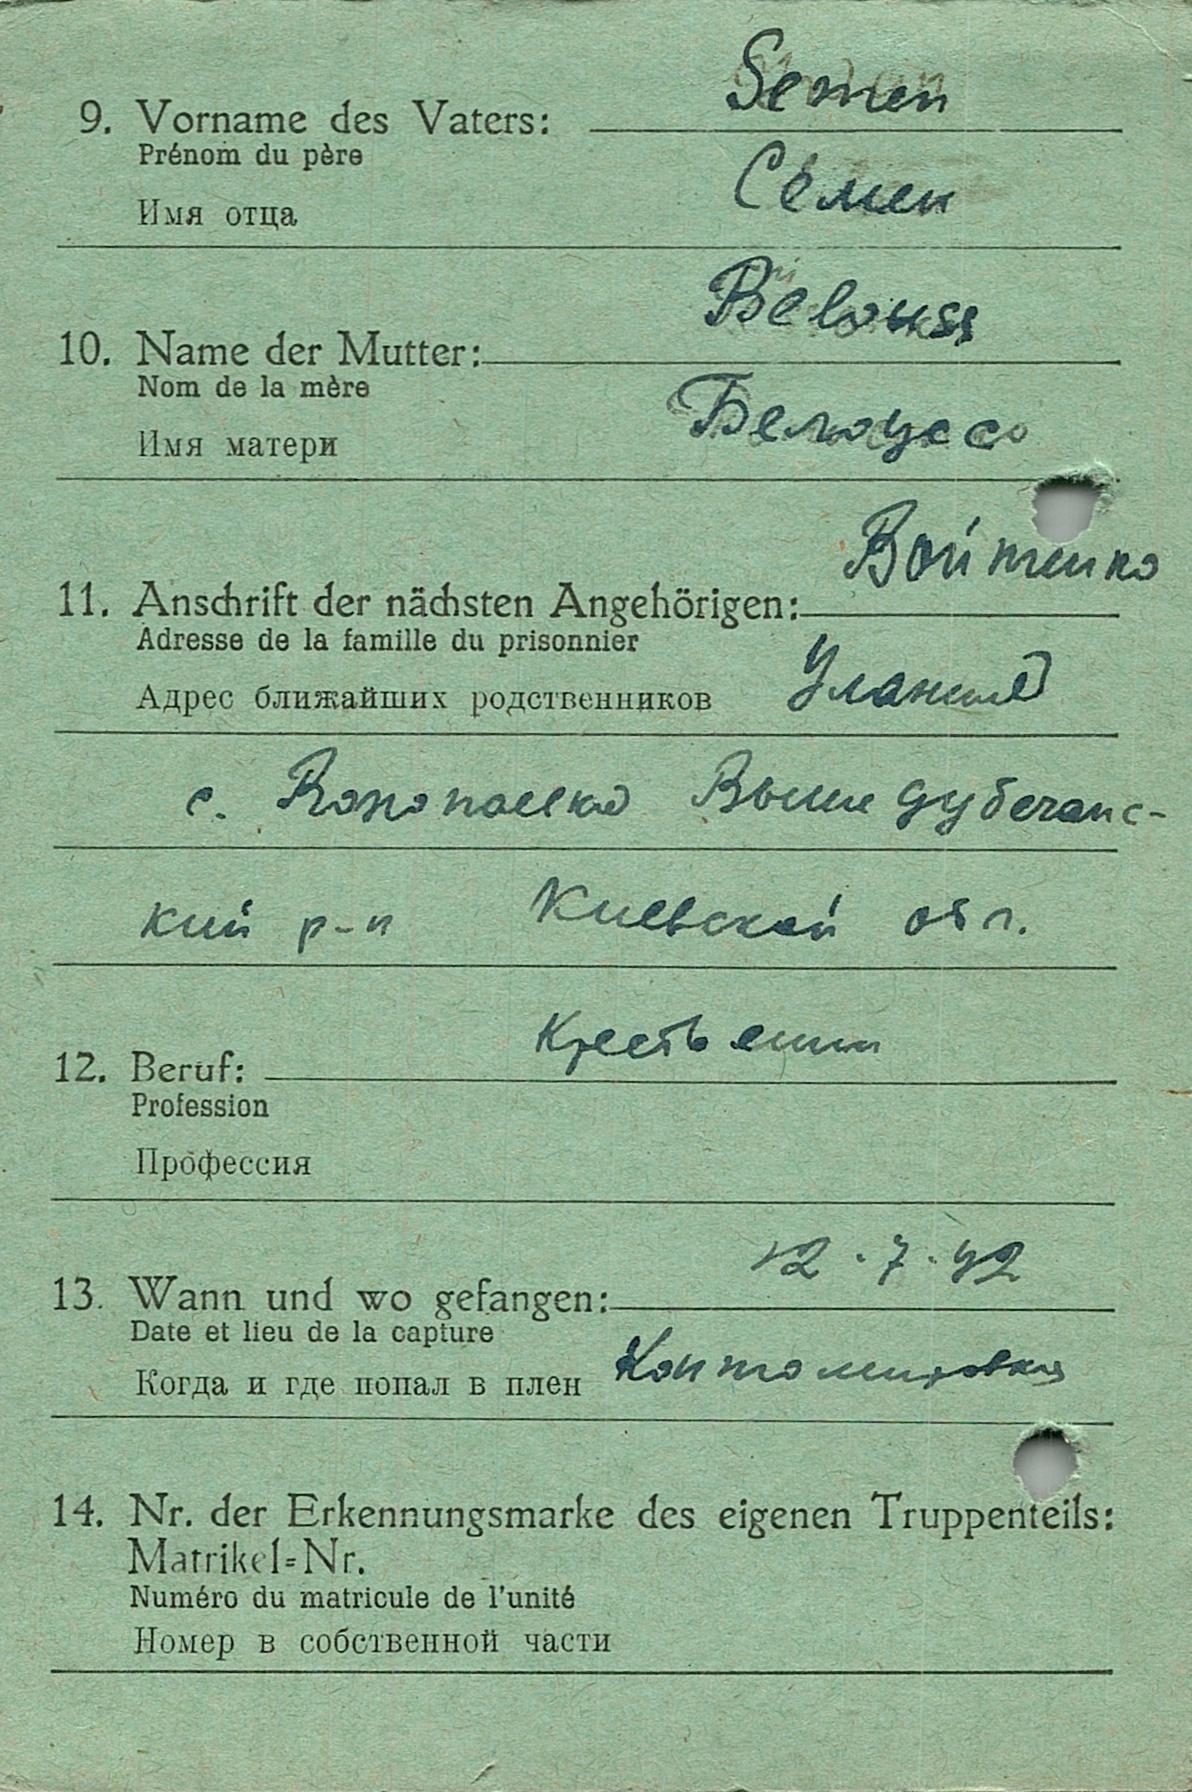 Semen
9. Vorname des Vaters:
Prénom du père
Семен
Имя отца
Belouss
10. Name der Mutter:
Nom de la mère
Белоусс
Имя матери
Войтенко
11. Anschrift der nächsten Angehörigen:
Adresse de la famille du prisonnier
Адрес ближайших родственников
с. Выше дубечанс-
кий р-н Киевской обл.
12. Beruf:
Profession
Профессия
12.7.42
13. Wann und wo gefangen:
Date et lieu de la capture
Когда и где попал в плен
14. Nr. der Erkennungsmarke des eigenen Truppenteils:
Matrikel=Nr.
Numéro du matricule de l'unité
Номер в собственной части